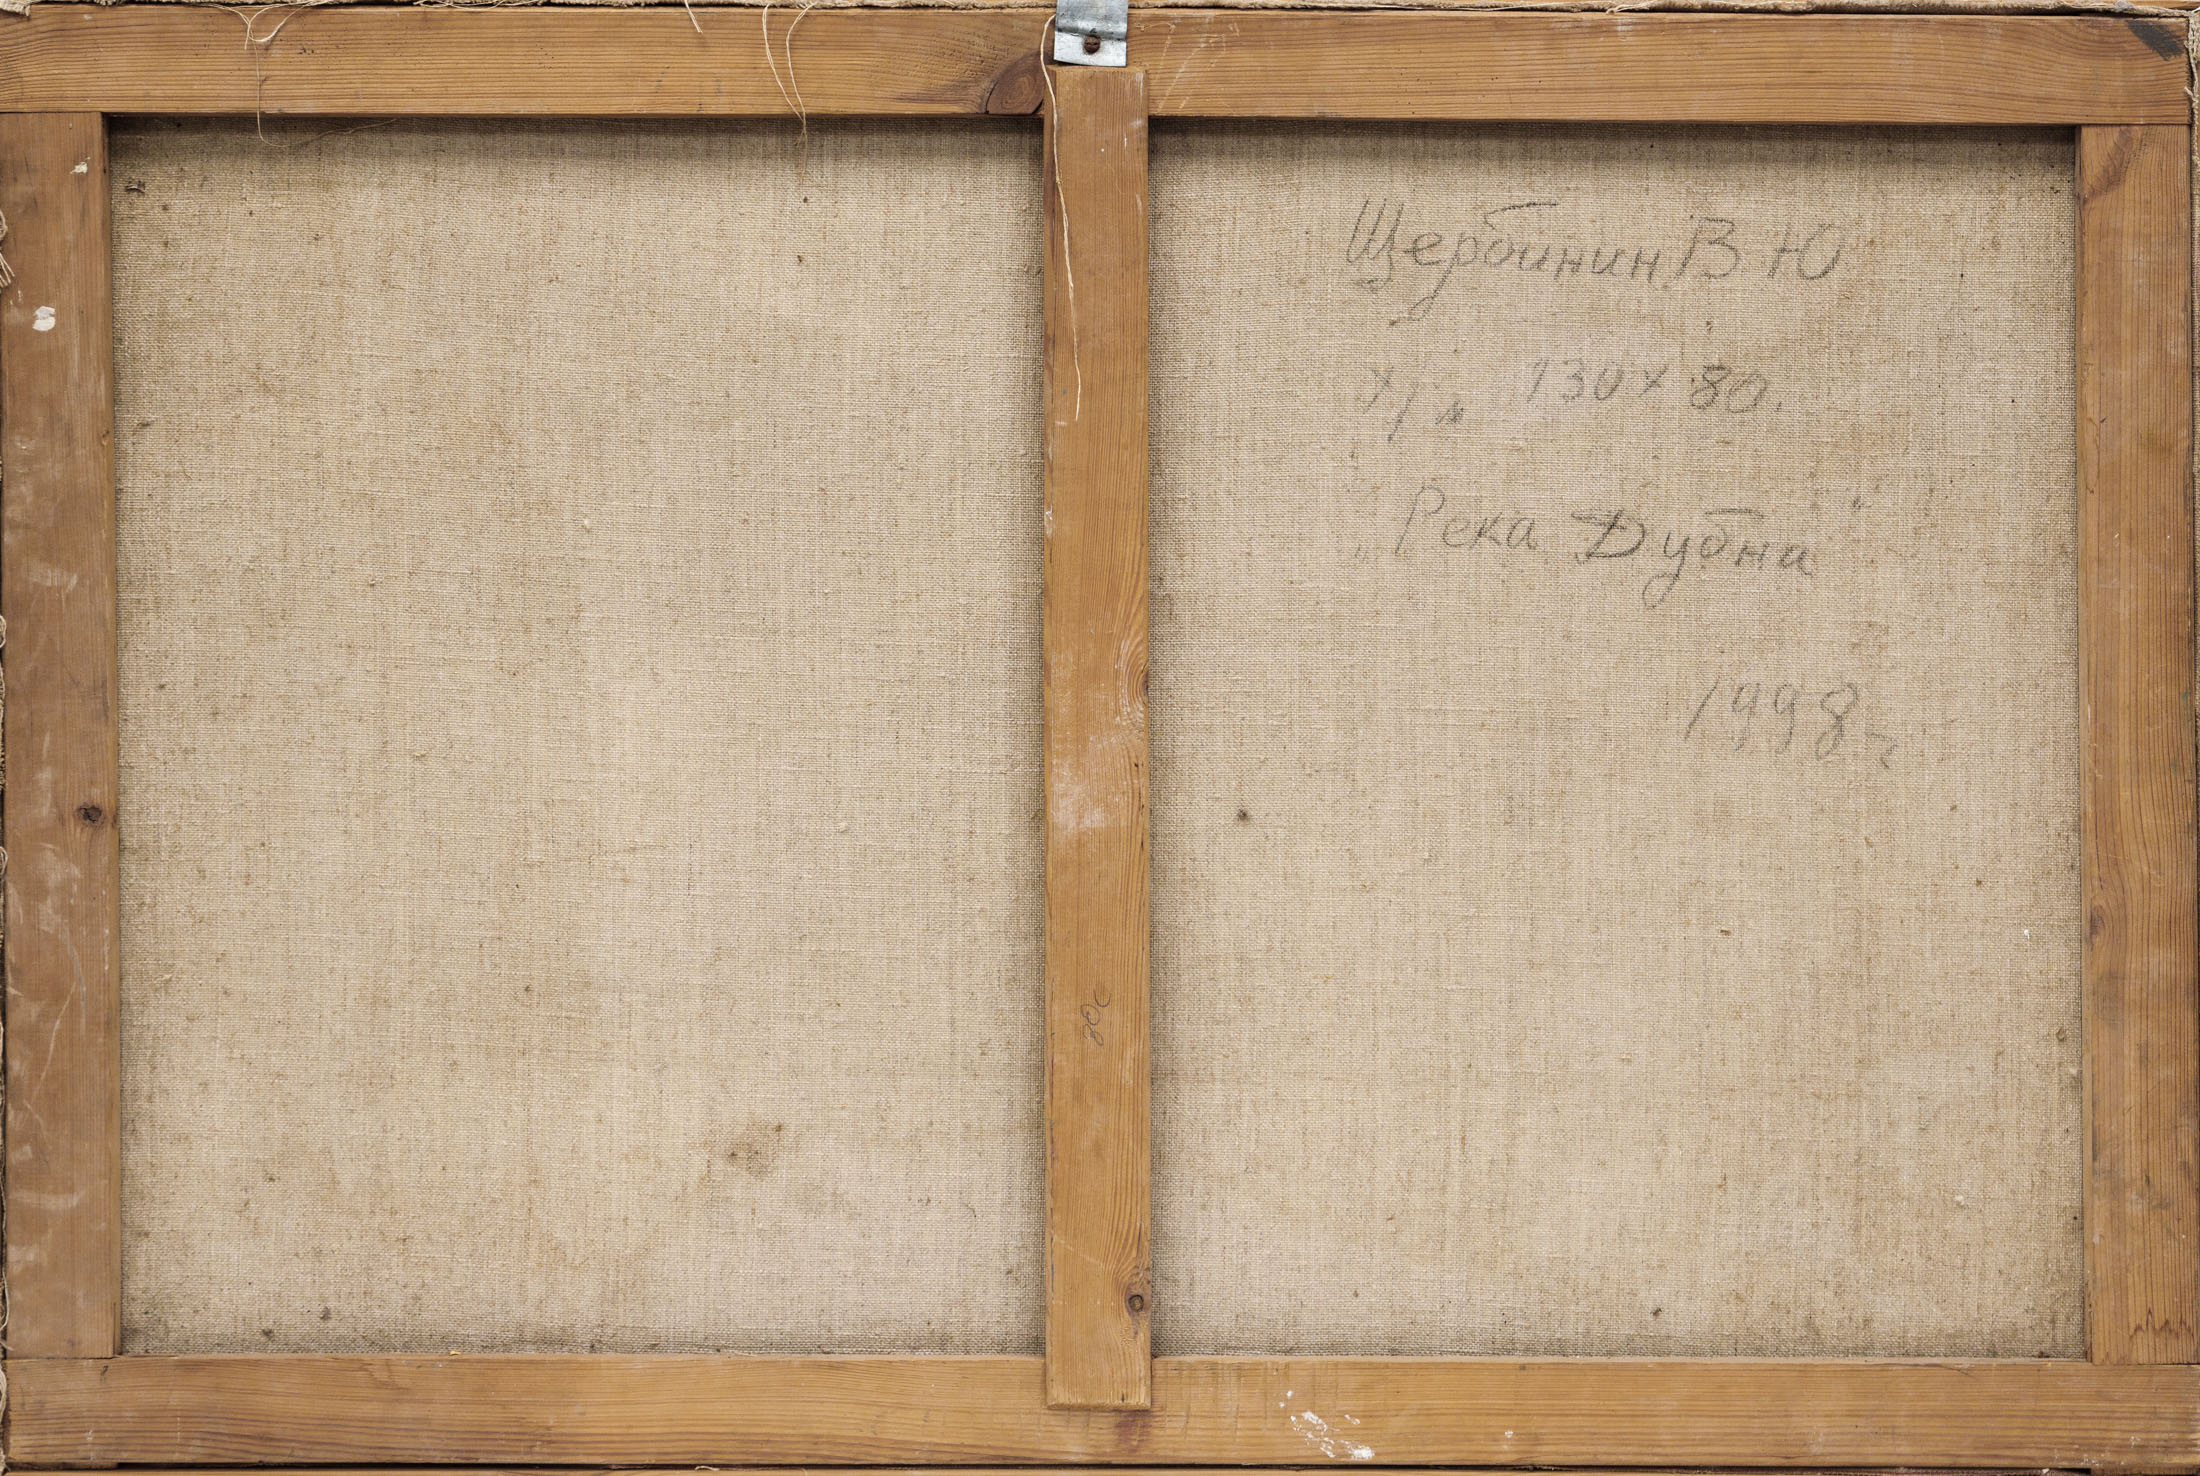 Щербинин В Ю
х/м 130х80.
„Река Дубна"
1998 г